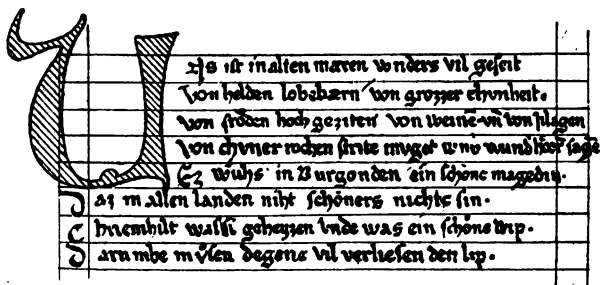 Uns ist in alten mæren wnders vil geseit
Von helden lobebærn von grozzer chvnheit.
von frŏden hochgeziten von weinē vn̄ von klagen
Von chvner rechen strite mvget ir nv wund hŏren sagē.
Ez wuhs in Burgonden ein schŏne magedin.
Daz in allen landen niht schŏners nichte sin.
Chriemhilt was si geheyzen vnde was ein schŏne wip.
Darumbe mvsen degene vil verliesen den lip.